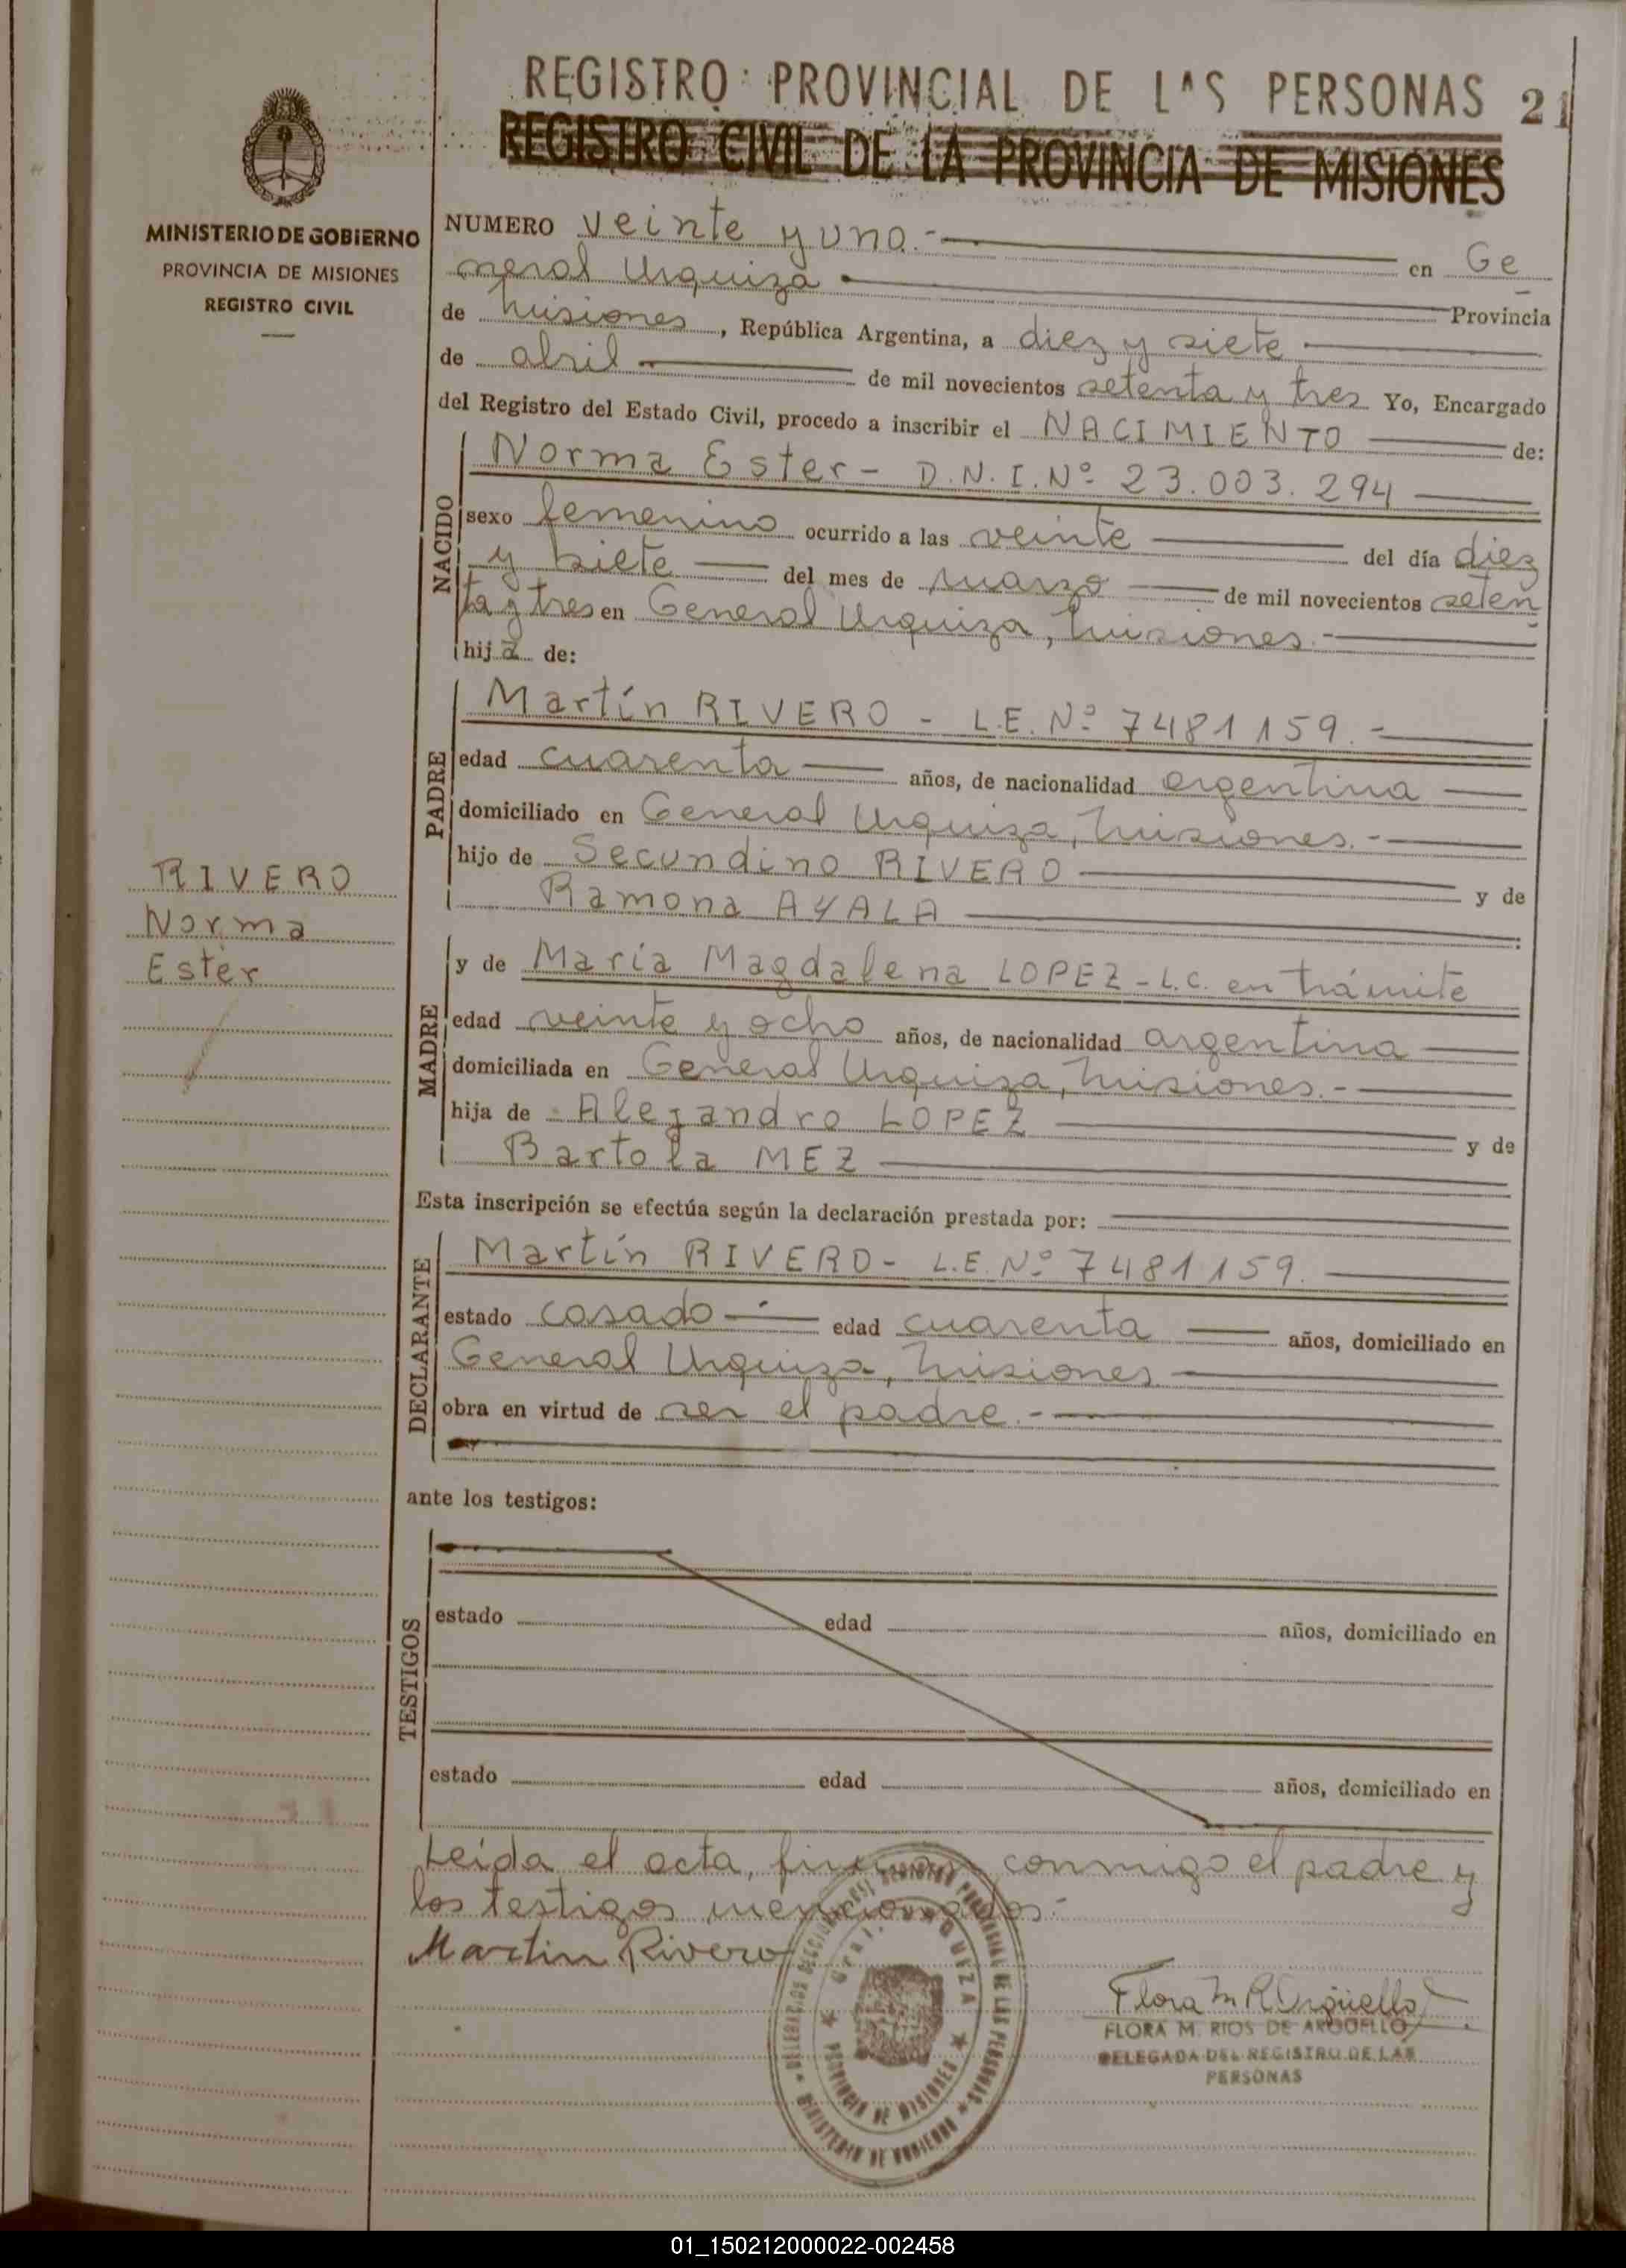 REGISTRO PROVINCIAL DE LAS PERSONAS 21
REGISTRO CIVIL DE LA PROVINCIA DE MISIONES
MINISTERIO DE GOBIERNO
PROVINCIA DE MISIONES
REGISTRO CIVIL
NUMERO veinte y uno.- en Ge
neral Urquiza Provincia
de Misiones, República Argentina, a diez y siete
de abril de mil novecientos setenta y tres Yo, Encargado
del Registro del Estado Civil, procedo a inscribir el NACIMIENTO de:
NACIDO
Norma Ester- D.N.I. Nº 23.003.294
sexo femenino ocurrido a las veinte del día diez
y siete del mes de marzo de mil novecientos seten
ta y tres en General Urquiza, Misiones.-
hija de:
PADRE
Martín RIVERO - L.E. Nº 7481159.-
edad cuarenta años, de nacionalidad argentina
domiciliado en General Urquiza, Misiones.-
hijo de Secundino RIVERO y de
Ramona AYALA
RIVERO
Norma
Ester
MADRE
y de María Magdalena LOPEZ - L.C. en trámite
edad veinte y ocho años, de nacionalidad argentina
domiciliada en General Urquiza, Misiones.-
hija de Alejandro LOPEZ y de
Bartola MEZ
Esta inscripción se efectúa según la declaración prestada por:
DECLARANTE
Martín RIVERO- L.E. Nº 7481159.
estado casado edad cuarenta años, domiciliado en
General Urquiza, Misiones
obra en virtud de ser el padre.-
ante los testigos:
TESTIGOS
estado edad años, domiciliado en
estado edad años, domiciliado en
Leída el acta, firman conmigo el padre y
los testigos mencionados.-
Martin Rivero
Flora M R Argüello
FLORA M. RIOS DE ARGUELLO
DELEGADA DEL REGISTRO DE LAS
PERSONAS
PROVINCIA DE MISIONES
MINISTERIO DE GOBIERNO
01_150212000022-002458